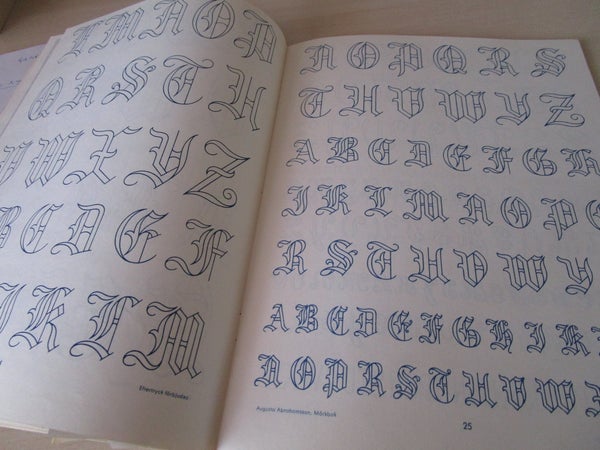 L M N O P
Q R S T U
V W X Y Z
B C D E F
I K L M
Eftertryck förbjudes
N O P Q R S
T U V W Y Z
A B C D E F G H
I K L M N O P
R S T U V W Y
A B C D E F G H I K
N O P R S T U V W
Augusta Abrahamsson, Märkbok
25